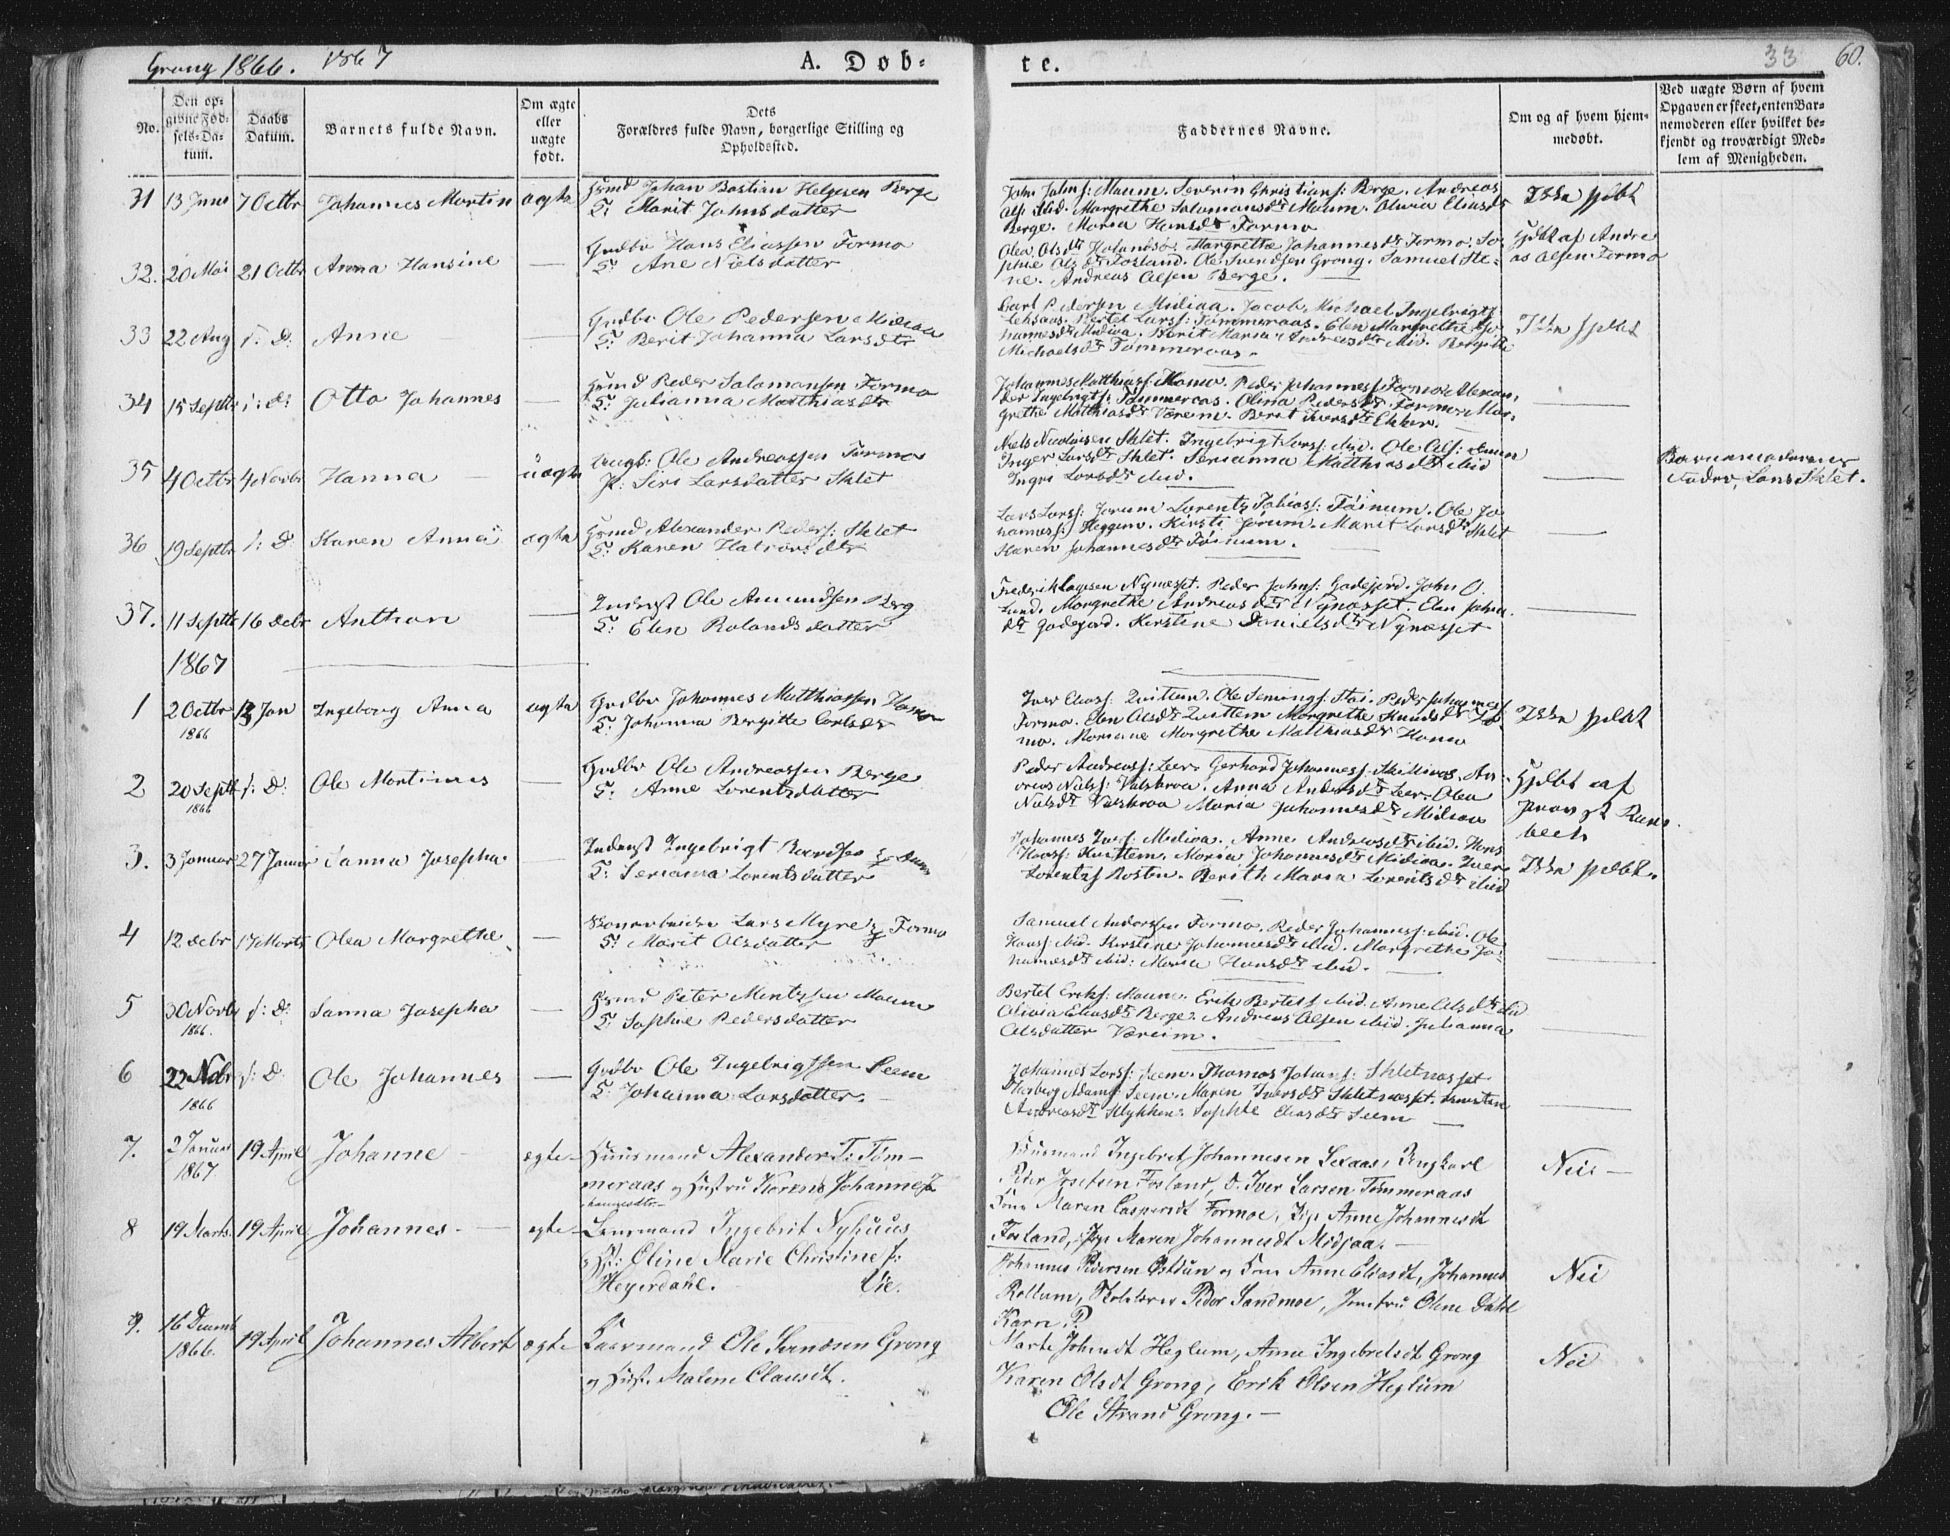 Grong 1866. 1867
A. Døb-
te.
33
60.
No.
Den op-
givne Fød-
sels-Da-
tum.
Daabs
Datum.
Barnets fulde Navn.
Om ægte
eller
uægte
født.
Dets
Forældres fulde Navn, borgerlige Stilling og
Opholdssted.
Faddernes Navne.
Om og af hvem hjem-
medøbt.
Ved uægte Børn af hvem
Opgaven er skeet, enten Bar-
nemoderen eller hvilket be-
kjendt og troværdigt Med-
lem af Menigheden.
31 13 Juni 7 Octbr Johannes Martin ægte Hsmd Johan Bastian Helgesen Berge
H: Marit Johnsdatter
John Johns: Maum. Severin Christians: Berge. Andreas
Ols: ibid. Margrethe Salamonsdr Maum. Olivia Eliasdr
Berge. Maria Hansdr Formo
Ikke hjdbt
32. 20 Mai 21 Octbr Anna Hansine — Grdbr Hans Eliassen Formo
H: Ane Nielsdatter
Olea Olsdr Margrethe Johannesdr Formo. So-
phie Olsdr Fosland. Ole Svendsen Grong. Samuel Ste-
ne. Andreas Olsen Berge.
Hjdbt af Andre
as Olsen Formo
33 22 Aug s: D: Anne — Grdbr Ole Pedersen Mediaa
H: Berit Johanna Larsdtr
Carl Pedersen Mediaa. Jacob Michael Ingebrigts:
Leksaas. Bertel Lars: Tømmeraas. Elen Margrethe Jo-
hannesdr Mediaa. Berit Maria Andreasdr ibid. Bergitte
Michaelsdr Tømmeraas.
Ikke hjdbt
34 15 Septbr s: D: Otto Johannes — Hsmd Peder Salamonsen Formo
H: Julianna Matthiasdr
Johannes Matthias: Homo. Peder Johannes: Formo. Alexan-
der Ingebrigts: Tømmeraas. Olina Pedersdr Formo. Mar-
grethe Matthiasdr Værem. Berit Iversdr Ekker.
35 4 Octbr 4 Novbr Hanna — uægte Ungk: Ole Andreassen Formo
P: Siri Larsdatter Sklet
Niels Nicolaisen Sklet. Ingebrigt Lars: ibid. Ole Ols:
Inger Larsdr Sklet. Serianna Matthiasdr ibid
Ingri Larsdr ibid.
Barnemoderens
Fader, Lars Sklet.
36 19 Septbr s: D: Karen Anna ægte Hsmd Alexander Peders: Sklet
H: Karen
Lars Lars: Jørum Lorents Tobias: Føinum. Ole Jo-
hannes: Heggum. Kirsti Jørum. Marit Larsdr Sklet
Karen Johannesdr Føinum.
37. 11 Septbr 16 Decbr Anthon — Inderst Ole Amundsen Berg
H: Elen Rolandsdatter
Frederik Nynæsset. Peder Johns: Gadejord. John O.
Lund. Margrethe Andreasdr Nynæsset. Elen Johns-
dr Gadejord. Kirstine Danielsdr Nynæsset
1867
1 2 Octbr 13 Jan Ingeborg Anna ægte Grdbr Johannes Matthiassen Homo
1866 H: Johanna Bergitte Carlsdr
Iver Elias: Qvittem. Ole Stai. Peder Johannes:
Formo. Elen Olsdr Qvittem Margrethe Knudsdr For-
mo. Mariane Margrethe Matthiasdr Homo
Ikke hjdbt
2 20 Septbr s: D: Ole Martinus — Grdbr Ole Andreassen Berge
1866 H: Anne Lorentzdatter
Peder Andreas: Leer. Gerhard Johannes: An-
dreas Nals: Valskraa. Anna Andersdr Leer. Olea
Nalsdr Valskraa Maria Johannesdr Mediaa
Hjdbt af
Provst Rune
beck
3. 3 Januar 27 Januar Sanna Josepha — Inderst Ingebrigt Baardsen
H: Serianna Lorentsdatter
Johannes Iver: Mediaa. Anne Andreasdr ibid. Hans
Haas: Maria Johannesdr Mediaa. Iver
Lorentzs: Rosten. Berith Maria Lorentsdr ibid
Ikke hjdbt.
4 12 Decbr 17 Marts Olea Margrethe — Lars Myre Formo
H: Marit Olsdatter
Samuel Anderssen Formo. Peder Johannes: ibid. Ole
Hans: ibid. Kirstine Johannesdr ibid. Margrethe Jo-
hannesdr ibid: Maria Hansdr ibid.
5 30 Novbr s: D: Sanna Josepha — Hsmd Peter Mentzsen Maum
1866. H: Sophie Pedersdatter
Bertel Eriks: Maum. Erik Bertels: ibid. Anne Olsdr ibid
Olivia Eliasdr Berge. Andreas Olsen ibid. Julianna
Olsdatter Væreim.
6 22 Nobr s: D: Ole Johannes — Grdbr Ole Ingebrigtsen Seem
1866 H: Johanna Larsdatter.
Johannes Lars: Seem. Thomas Johans: Sletnæsset
Adams: Seem. Maren Iversdr Skletnæsset.
Andreasdr Klykken. Sophie Eliasdr Seem
7. 2 Januar 19 April Johanne — ægte Huusmand Alexander T: Tøm-
1867 meraas og Hustru Karen Johannes
hannesdtr
Huusmand Ingebret Johannesen Lexaas, Ungkarl
Peder Josefsen Fosland, d. Iver Larsen Tømmeraas
Kone Maren Caspersdt Formoe, Pige Anne Johannesdt
Fosland, Pige Maren Johannesdt Midjaa.
Nei —
8 19 Marts. 19 April Johannes. — ægte Lensmand Ingebrit Nyhuus
og H: Oline Marie Christine f:
Heyerdahl. Vie.
Johannes Pedersen Østdun og Kone Anne Eliasdt, Johannes
Rollum, Skolelærer Peder Sandmoe, Jomfru Oline Dahl
Karen P.
Nei
9. 16 Decemb 19 April Johannes Albert ægte Huusmand Ole Svendsen Grong
1866. og Hust. Malene Clausdt.
Marte Johnsdt Heglum, Anne Ingebretsdt Grong
Karen Olsdt Grong, Erik Olsen Heglum
Ole Strand Grong. —
Nei